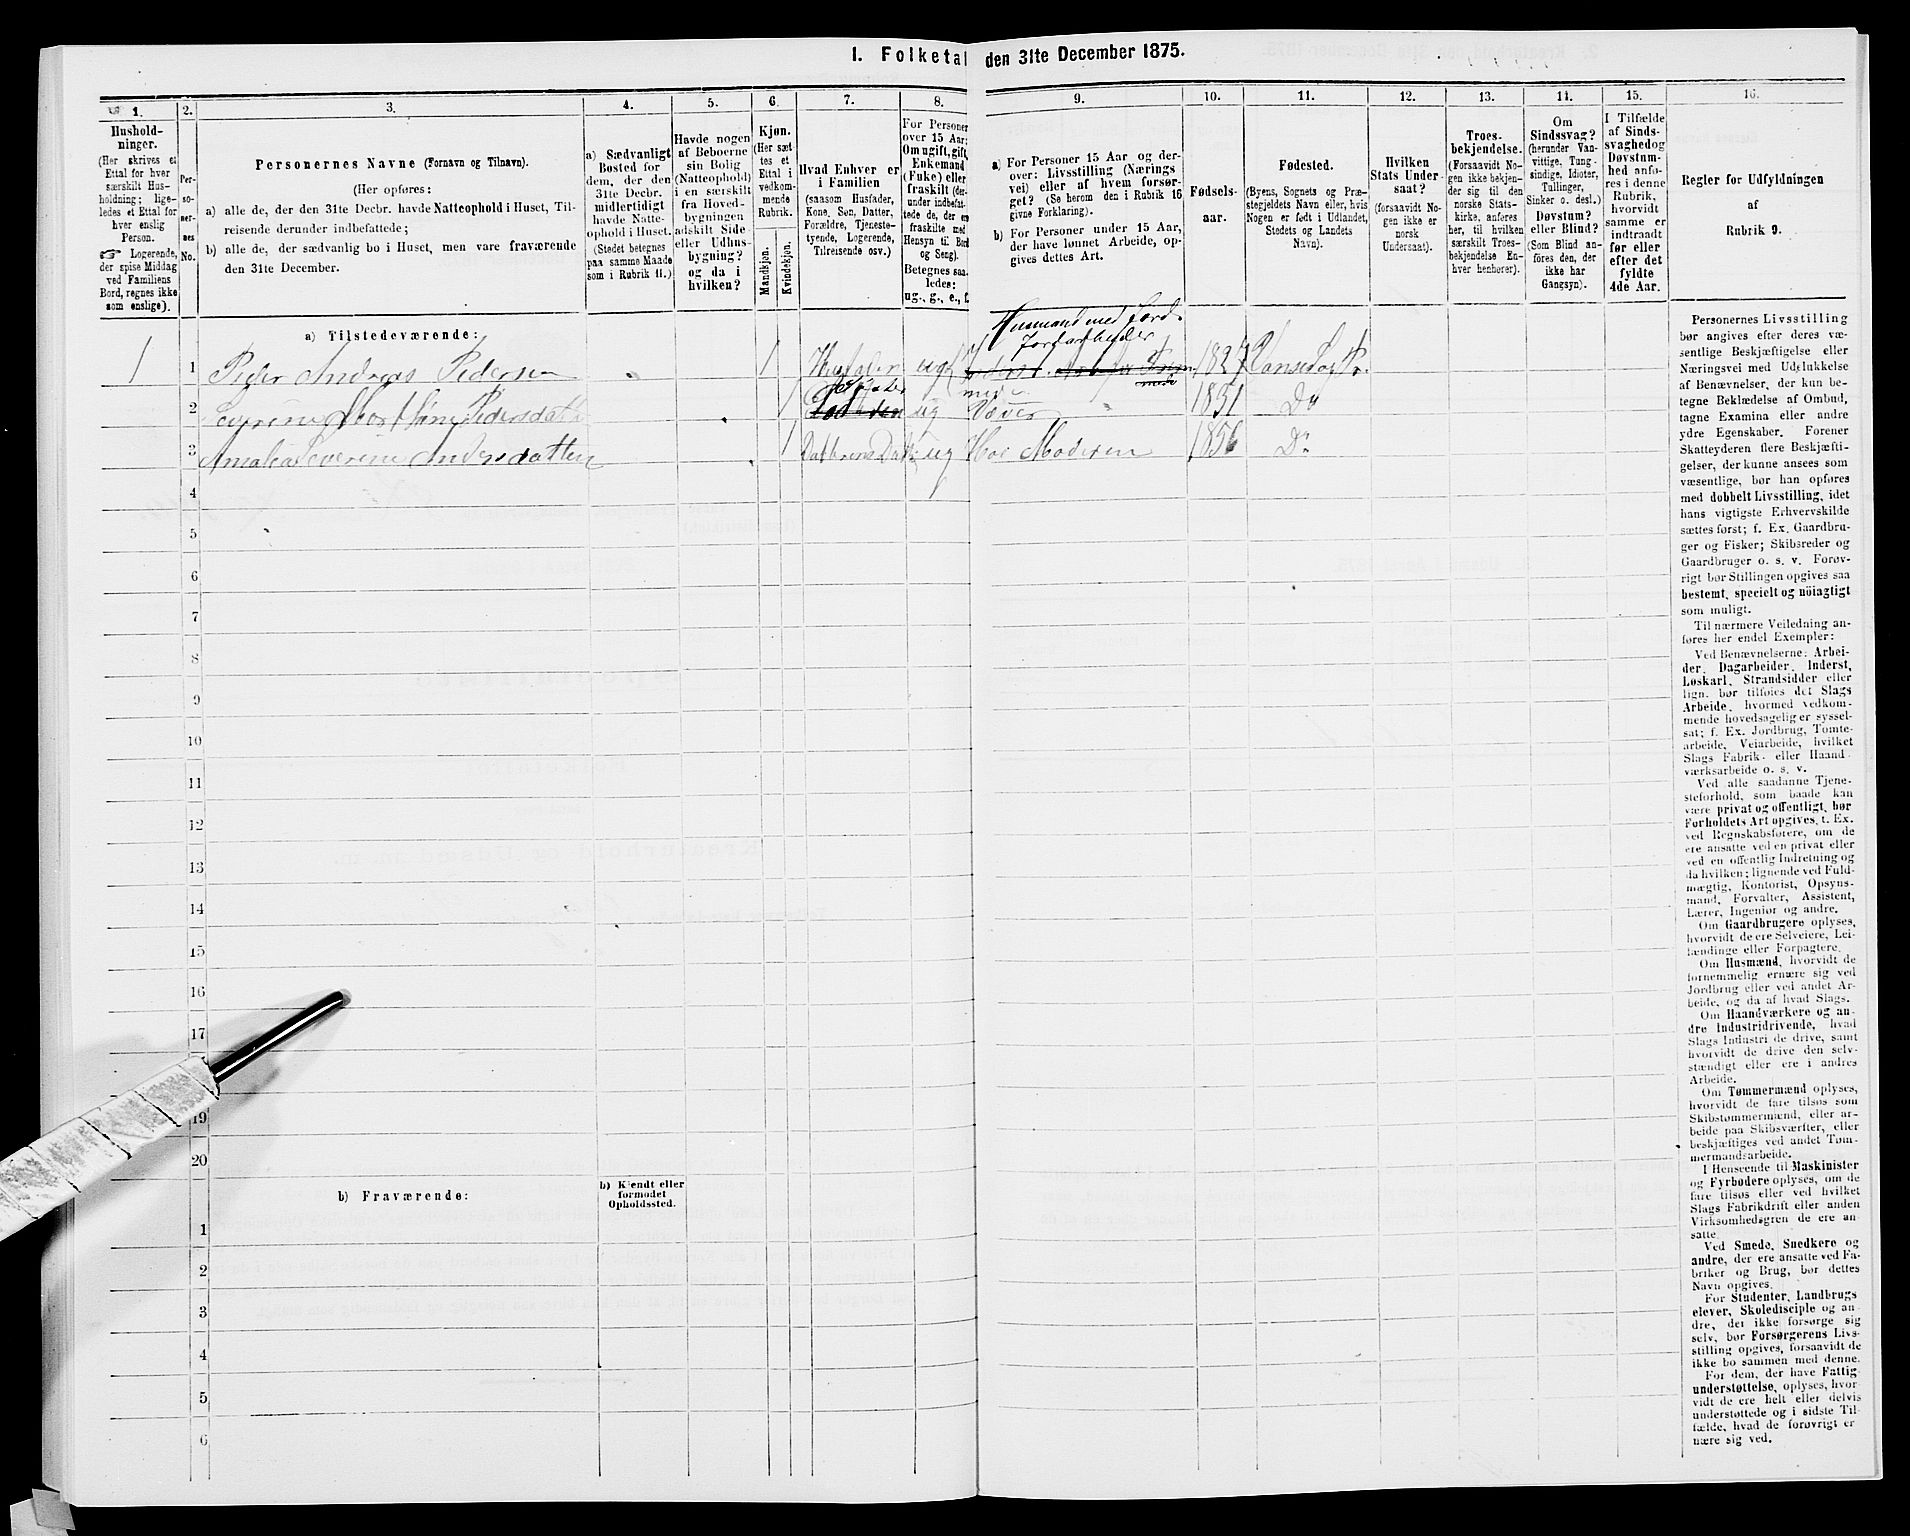 1. Folketal den 31te December 1875.
1. 2. 3. 4. 5. 6. 7. 8. 9. 10. 11. 12. 13. 14. 15. 16.
Hushold-
ninger.
(Her skrives et
Ettal for hver
særskilt Hus-
holdning; lige-
ledes et Ettal for
hver enslig
Person.
☞ Logerende,
der spise Middag
ved Familiens
Bord, regnes ikke
som enslige).
Per-
so-
ner-
nes
No.
Personernes Navne (Fornavn og Tilnavn).
(Her opføres:
a) alle de, der den 31te Decbr. havde Natteophold i Huset, Til-
reisende derunder indbefattede;
b) alle de, der sædvanlig bo i Huset, men vare fraværende
den 31te December.
a) Sædvanligt
Bosted for
dem, der den
31te Decbr.
midlertidigt
havde Natte-
ophold i Huset.
(Stedet betegnes
paa samme Maade
som i Rubrik 11.)
Havde nogen
af Beboerne
sin Bolig
(Natteophold)
i en særskilt
fra Hoved-
bygningen
adskilt Side-
eller Udhus-
bygning?
og da i
hvilken?
Kjøn.
(Her sæt-
tes et
Ettal i
vedkom-
mende
Rubrik.
Mandkjøn.
Kvindekjøn.
Hvad Enhver er
i Familien
(saasom Husfader,
Kone, Søn, Datter,
Forældre, Tjeneste-
tyende, Logerende,
Tilreisende osv.)
For Personer
over 15 Aar:
Om ugift, gift,
Enkemand
(Fuke) eller
fraskilt (der-
under indbefat-
tede de, der er
fraskilte med
Hensyn til Bord
og Seng).
Betegnes saa-
ledes:
ug., g., e., f.
a) For Personer 15 Aar og der-
over: Livsstilling (Nærings-
vei) eller af hvem forsør-
get? (Se herom den i Rubrik 16
givne Forklaring).
b) For Personer under 15 Aar,
der have lønnet Arbeide, op-
gives dettes Art.
Fødsels-
aar.
Fødested.
(Byens, Sognets og Præ-
stegjeldets Navn eller, hvis
Nogen er født i Udlandet,
Stedets og Landets
Navn).
Hvilken
Stats Under-
saat?
(forsaavidt No-
gen ikke er
norsk
Undersaat).
Troes-
bekjendelse.
(Forsaavidt No-
gen ikke bekjen-
der sig til den
norske Stats-
kirke, anføres
her, til hvilken
særskilt Troes-
bekjendelse En-
hver henhører).
Om
Sindssvag?
(herunder Van-
vittige, Tung-
sindige, Idioter,
Tullinger,
Sinker o. desl.)
Døvstum?
eller Blind?
(Som Blind an-
føres den, der
ikke har
Gangsyn).
I Tilfælde
af Sinds-
svaghed og
Døvstum-
hed anfø-
res i denne
Rubrik,
hvorvidt
samme er
indtraadt
før eller
efter det
fyldte
4de Aar.
Regler for Udfyldningen
af
Rubrik 9.
a) Tilstedeværende:
Husmand med Jord.
Jordarbeider
1 1 Peder Andreas Pedersen 1 Husfader ug 1827 Vanse Sogn Pr.
2 Severine Pedersdatter 1 ug Væver 1831 Do
3 Amalia Severine Andersdatter 1 Datters Datter ug Hos Moderen 1856 Do
4
5
6
7
8
9
10
11
12
13
14
15
16
17
19
20
b) Fraværende:
b) Kjendt eller
formodet
Opholdssted.
1
2
3
4
5
6
Personernes Livsstilling
bør angives efter deres væ-
sentlige Beskjæftigelse eller
Næringsvei med Udelukkelse
af Benævnelser, der kun be-
tegne Beklædelse af Ombud,
tagne Examina eller andre
ydre Egenskaber. Forener
Skatteyderen flere Beskjæfti-
gelser, der kunne ansees som
væsentlige, bør han opføres
med dobbelt Livsstilling, idet
hans vigtigste Erhvervskilde
sættes først; f. Ex. Gaardbru-
ger og Fisker; Skibsreder og
Gaardbruger o. s. v. Forøv-
rigt bør Stillingen opgives saa
bestemt, specielt og nöiagtigt
som muligt.
Til nærmere Veiledning an-
føres her endel Exempler:
Ved Benævnelserne: Arbei-
der, Dagarbeider, Inderst,
Løskarl, Strandsidder eller
lign. bør tilføies det Slags
Arbeide, hvormed vedkom-
mende hovedsagelig er syssel-
sat; f. Ex. Jordbrug, Tomte-
arbeide, Veiarbeide, hvilket
Slags Fabrik- eller Haand-
værksarbeide o. s. v.
Ved alle saadanne Tjene-
steforhold, som baade kan
være privat og offentligt, bør
Forholdets Art opgives, f. Ex.
ved Regnskabsførere, om de
ere ansatte ved en privat eller
ved en offentlig Indretning og
da hvilken; lignende ved Fuld-
mægtig, Kontorist, Opsyns-
mand, Forvalter, Assistent,
Lærer, Ingeniør og andre.
Om Gaardbrugere oplyses,
hvorvidt de ere Selveiere, Lei-
lændinge eller Forpagtere.
Om Husmænd, hvorvidt de
fornemmelig ernære sig ved
Jordbrug eller ved andet Ar-
beide, og da af hvad Slags.
Om Haandværkere og an-
dre Industridrivende, hvad
Slags Industri de drive, samt
hvorvidt de drive den selv-
stændigt eller ere i andres
Arbeide.
Om Tømmermænd oplyses,
hvorvidt de fare tilsøs som
Skibstømmermænd, eller ar-
beide paa Skibsværfter, eller
beskjæftiges ved andet Tøm-
mermandsarbeide.
I Henseende til Maskinister
og Fyrbødere oplyses, om de
fare tilsøs eller ved hvilket
Slags Fabrikdrift eller anden
Virksomhedsgren de ere an-
satte.
Ved Smede, Snedkere og
andre, der ere ansatte ved Fa-
briker og Brug, bør dettes
Navn opgives.
For Studenter, Landbrugs-
elever, Skoledisciple og an-
dre, der ikke forsørge sig
selv, bør Forsørgerens Livs-
stilling opgives, forsaavidt de
ikke bo sammen med denne.
For dem, der have Fattig-
understøttelse, oplyses, hvor-
vidt de ere helt eller delvis
understøttede og i sidste Til-
fælde, hvad de forøvrigt er-
nære sig ved.